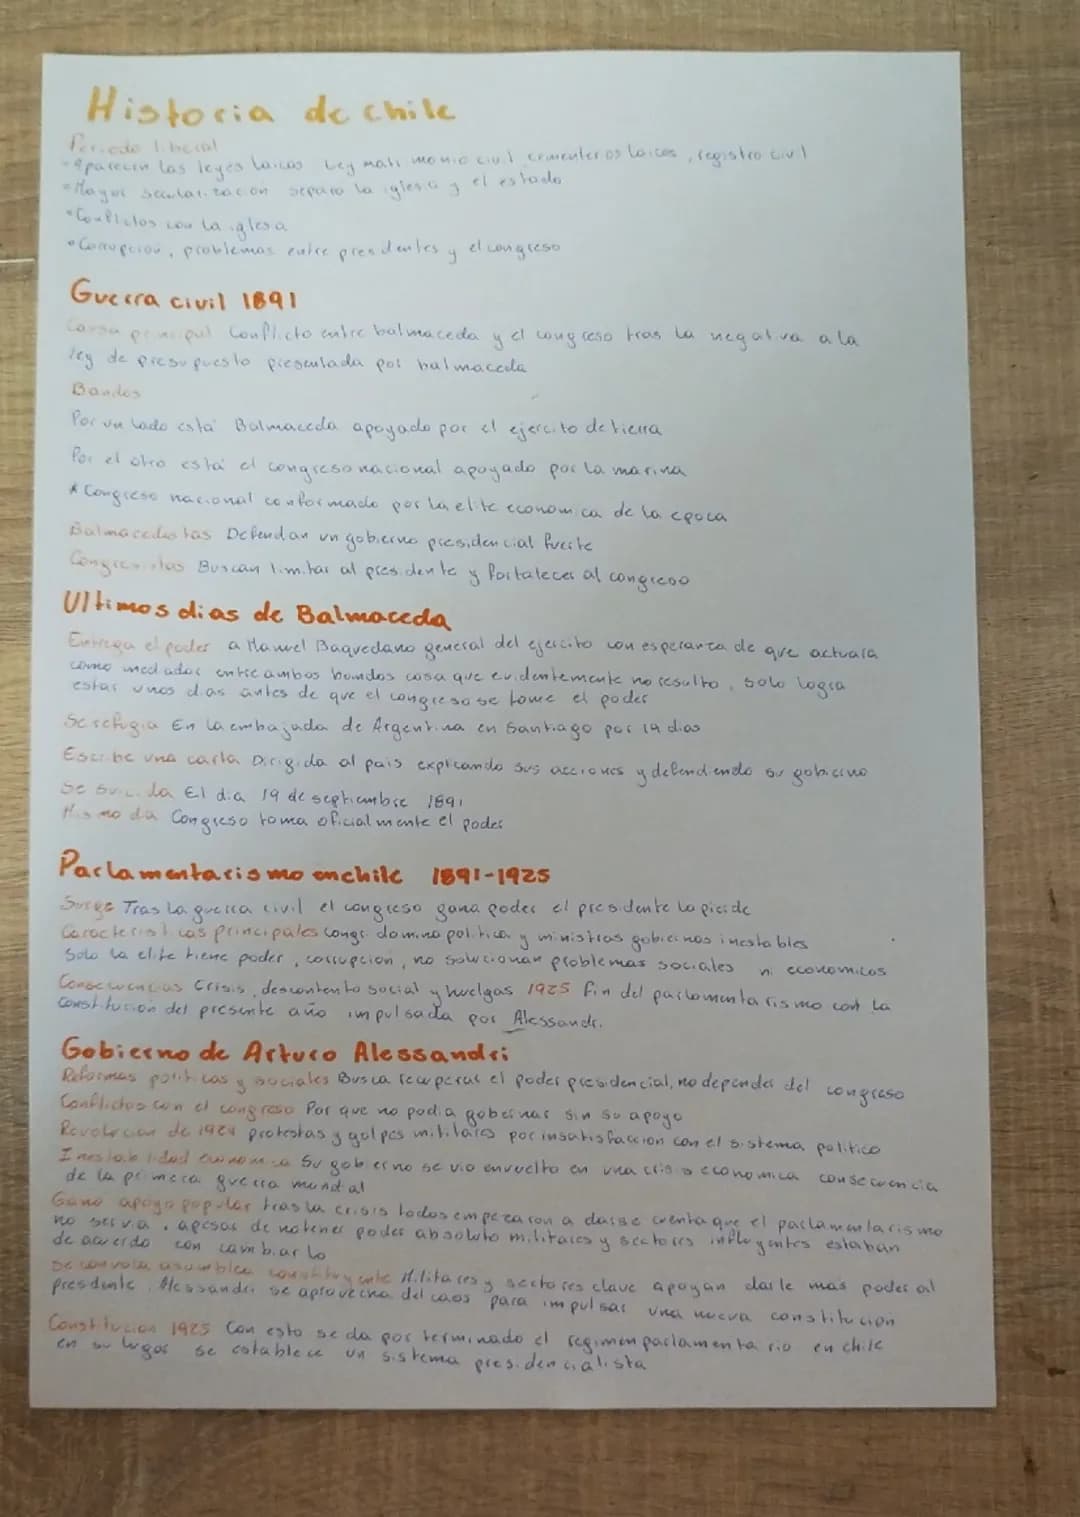 Historia de chile
Periodo liberal
•Aparecen las leyes laicas Ley matrimonio civil cementerios laicos, registro civil
•Mayor secularización separo la iglesia y el estado
•Conflictos con la iglesia
•Corrupcion, problemas entre presidentes y el congreso
Guerra civil 1891
Causa principal Conflicto entre balmaceda y el congreso tras la negativa a la
ley de presupuesto presentada por balmaceda
Bandos
Por un lado está Balmaceda apoyado por el ejercito de tierra
Por el otro está el congreso nacional apoyado por la marina
* Congreso nacional conformado por la elite economica de la epoca
Balmacedistas Defendian un gobierno presidencial fuerte
Congresistas Buscan limitar al presidente y fortalecer al congreso
Ultimos dias de Balmaceda
Entrega el poder a Manuel Baquedano general del ejercito con esperanza de que actuara
como mediador entre ambos bandos cosa que evidentemente no resulto, solo logra
estar unos dias antes de que el congreso se tome el poder
Se refugia En la embajada de Argentina en Santiago por 19 dias
Escribe una carta Dirigida al pais explicando sus acciones y defendiendo su gobierno
Se suicida El dia 19 de septiembre 1891
Mismo dia Congreso toma oficialmente el poder
Parlamentarismo en chile 1891-1925
Surge Tras la guerra civil el congreso gana poder el presidente lo pierde
Caracteristicas principales congr. domina politica y ministros gobiernos inestables
Solo la elite tiene poder, corrupcion, no solucionan problemas sociales ni economicos
Consecuencias Crisis, descontento social y huelgas 1925 Fin del parlamentarismo con la
constitución del presente año impulsada por Alessandri.
Gobierno de Arturo Alessandri
Reformas politicas y sociales Busca recuperar el poder presidencial, no depender del congreso
Conflictos con el congreso Por que no podia gobernar sin su apoyo
Revolucion de 1924 protestas y golpes militares por insatisfaccion con el sistema politico
Inestabilidad economica Su gobierno se vio envuelto en una crisis economica consecuencia
de la primera guerra mundial
Gano apoyo popular tras la crisis todos empezaron a darse cuenta que el parlamentarismo
no servia, apesar de no tener poder absoluto militares y sectores influyentes estaban
de acuerdo con cambiarlo
Se convoca asamblea constituyente Militares y sectores clave apoyan darle mas poder al
presidente. Alessandri se aprovecha del caos para impulsar una nueva constitución
Constitucion 1925 Con esto se da por terminado el regimen parlamentario en chile
en su lugar se establece un sistema presidencialista